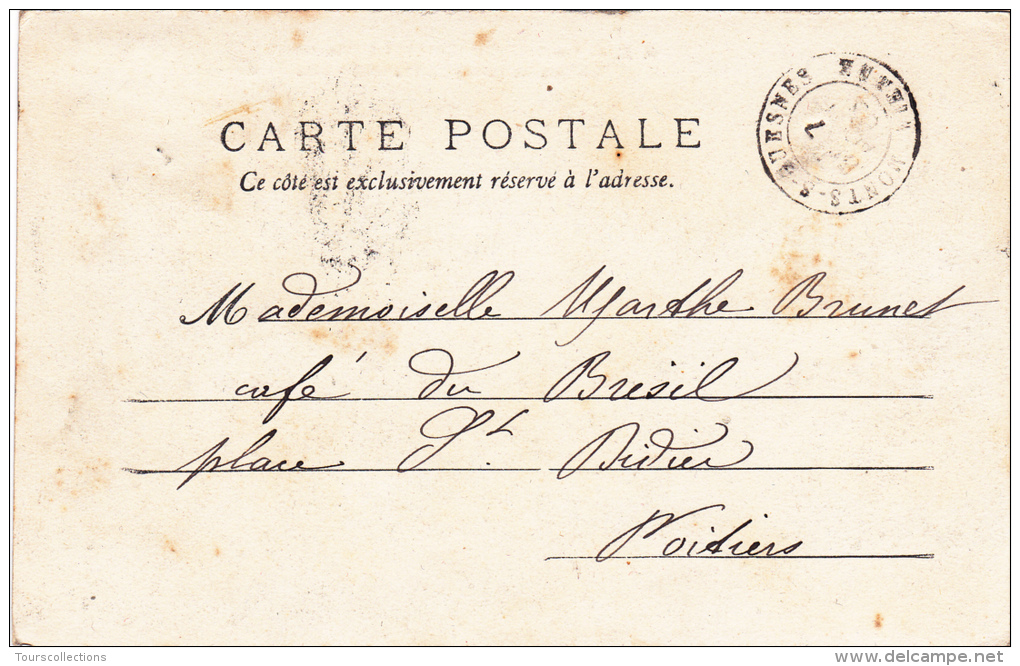 CARTE POSTALE
Ce côté est exclusivement réservé à l'adresse.
MONTS-S-GUESNES VIENNE
7
Mademoiselle Marthe Brunet
café du Brésil
place St Didier
Poitiers
Tourscollections
www.delcampe.net